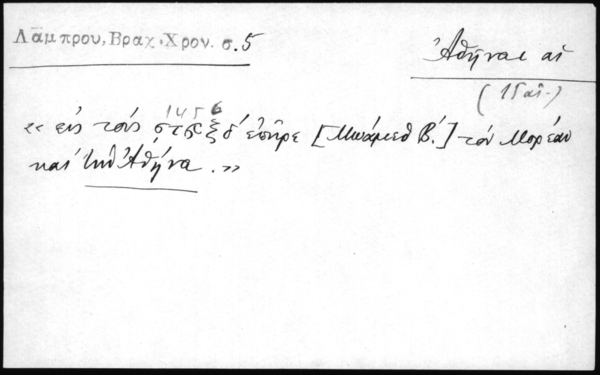 Λάμπρου, Βραχ. Χρον. σ. 5
Ἀθῆναι αἱ
(15 αἰ.)
1456
« εἰς τοὺς ͵ϛ϶ξδ´ ἐπῆρε [Μωάμεθ Β´.] τὸν Μορέαν
καὶ τὴν Ἀθήνα. »